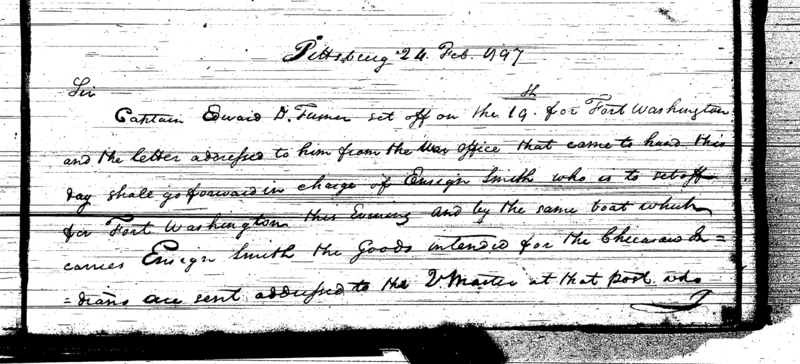 Pittsburg 24. Feb. 1797
Sir
Captain Edward D. Turner set off on the 19.th for Fort Washington
and the letter addressed to him from the War office that came to hand this
day shall go forward in charge of Ensign Smith who is to set off
for Fort Washington this Evening and by the same boat which
carries Ensign Smith the Goods intended for the Chicasaw In=
=dians are sent addressed to the Q Master at that post who